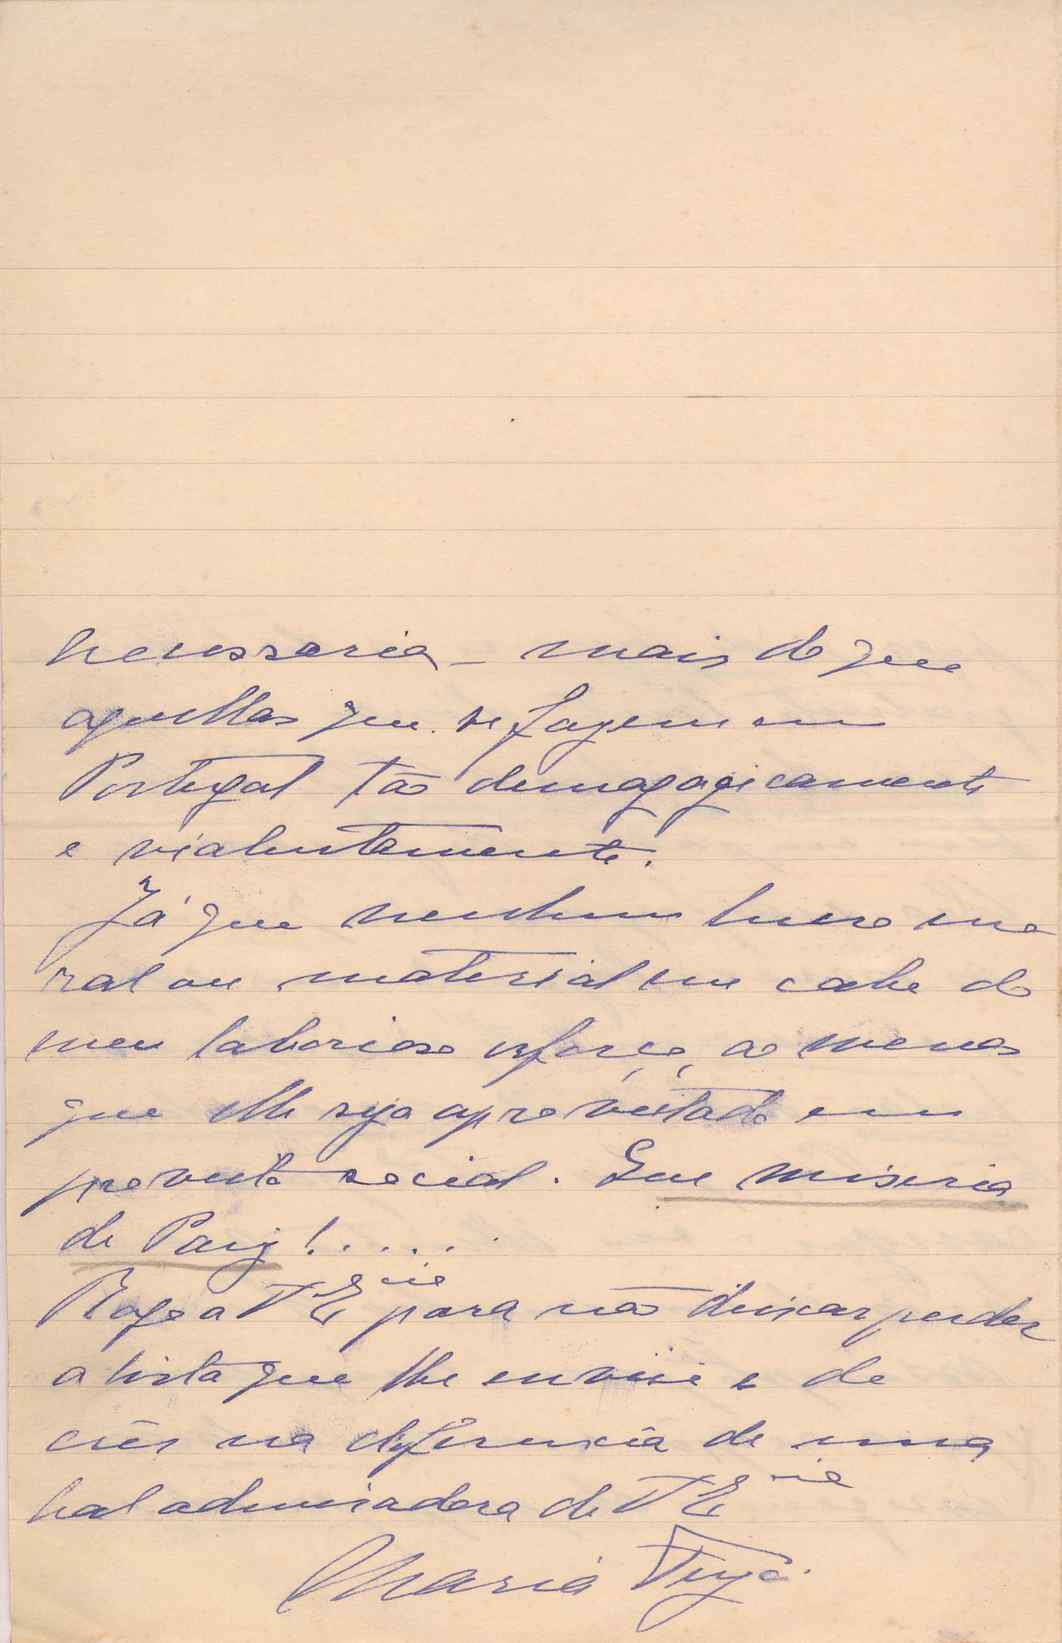 necessaria – mais do que
aquellas que se fazem em
Portugal tão demagogicamente
e violentamente.
Já que nenhum lucro mo
ral ou material me cabe do
meu laborioso esforço, ao menos
que elle seja aproveitado em
proveito social. Que miseria
de Paiz!.....
Rogo a V Ex cia para não deixar perder
a lista que lhe enviei e de
crêr na deferencia de uma
leal admiradora de V Ex cia
Maria